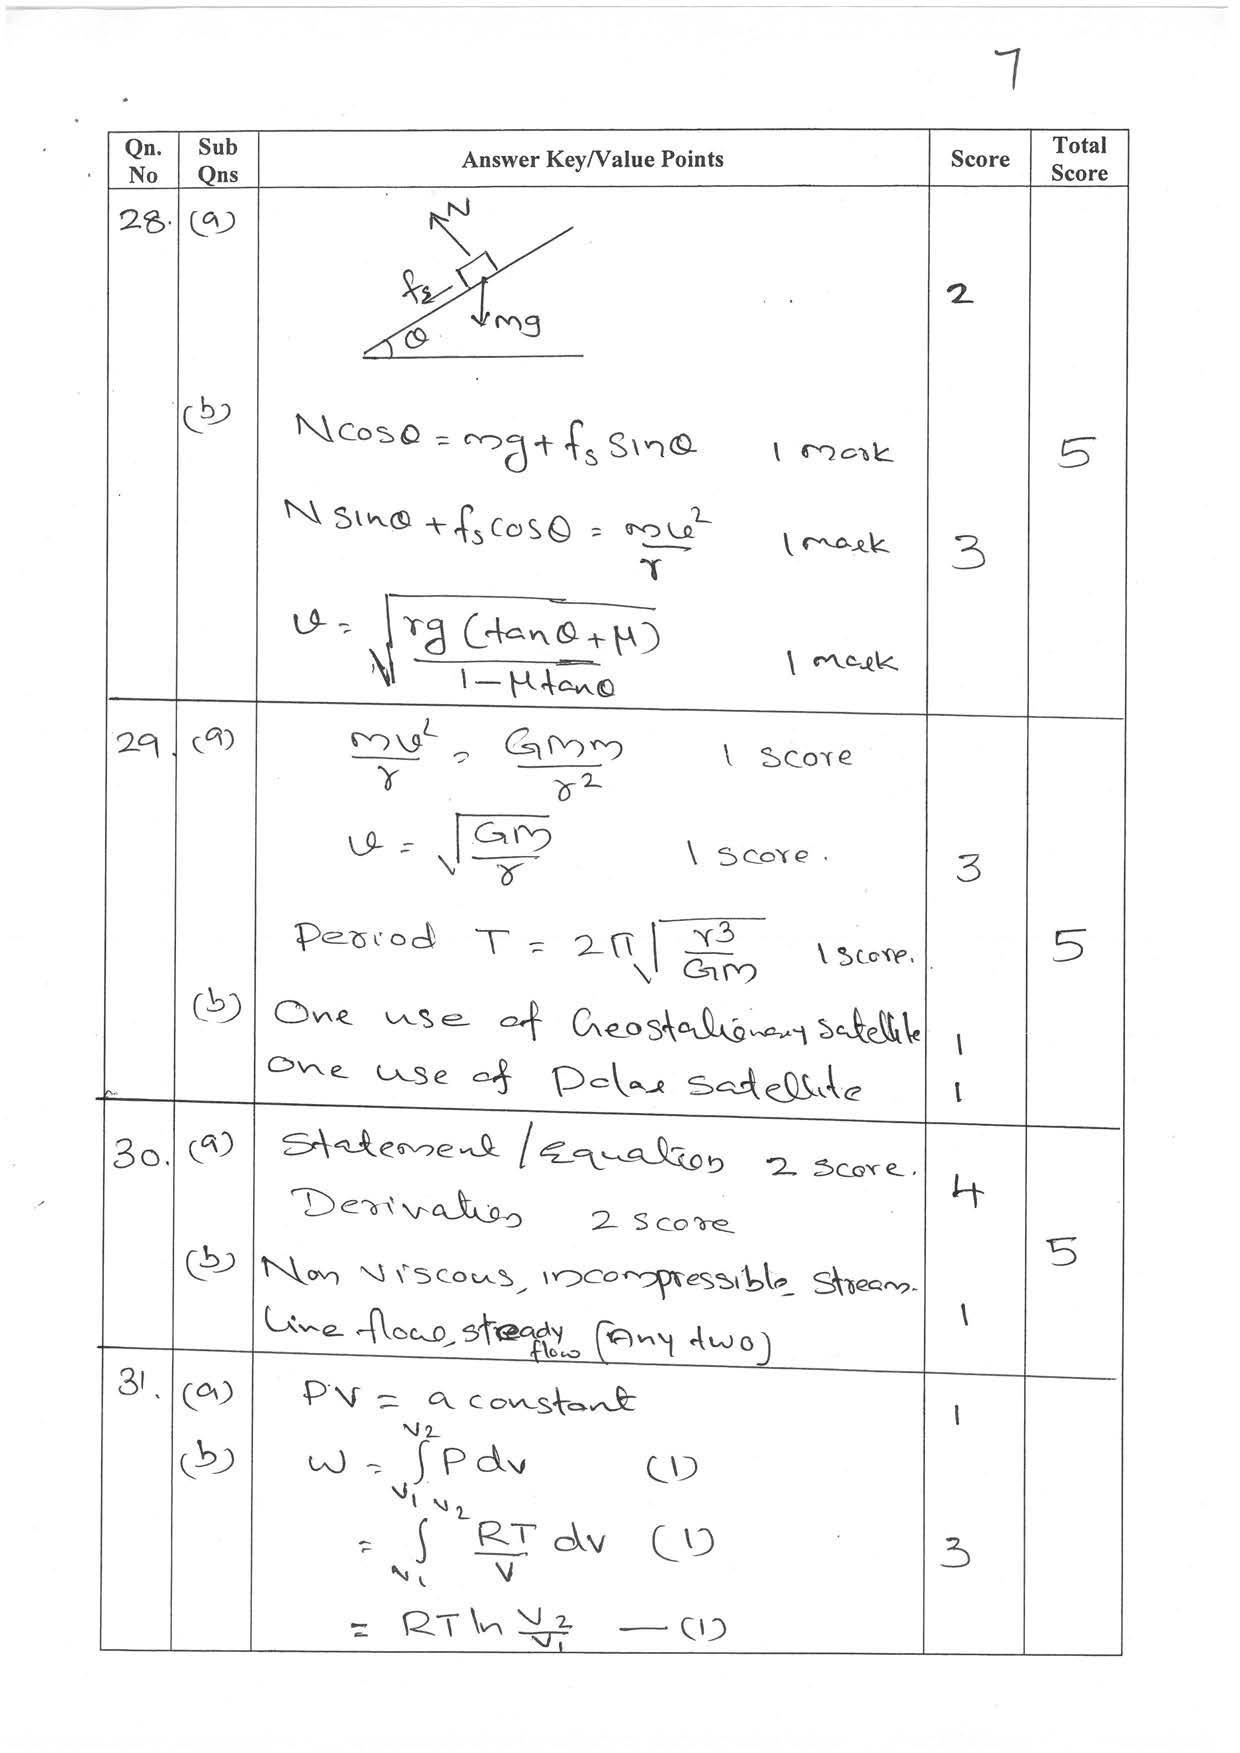 7
Qn. No | Sub Qns | Answer Key/Value Points | Score | Total Score
28. (a) N fs mg θ 2
(b) Ncosθ = mg + fs Sinθ 1 mark 5
N sinθ + fs cosθ = mv²/r 1 mark 3
v = √(rg (tanθ + μ) / 1 – μtanθ) 1 mark
29. (a) mv²/r = GMm/r² 1 score
v = √(GM/r) 1 score. 3
Period T = 2π √(r3/GM) 1 score. 5
(b) One use of Geostationary satellite 1
One use of Polar satellite 1
30. (a) Statement / Equation 2 score. 4
Derivation 2 score
(b) Non viscous, incompressible, Stream- 5
line flow, steady flow (Any two) 1
31. (a) PV = a constant 1
(b) W = ∫V1 V2 P dv (1)
= ∫V1 V2 RT/V dv (1) 3
= RT ln V2/V1 — (1)